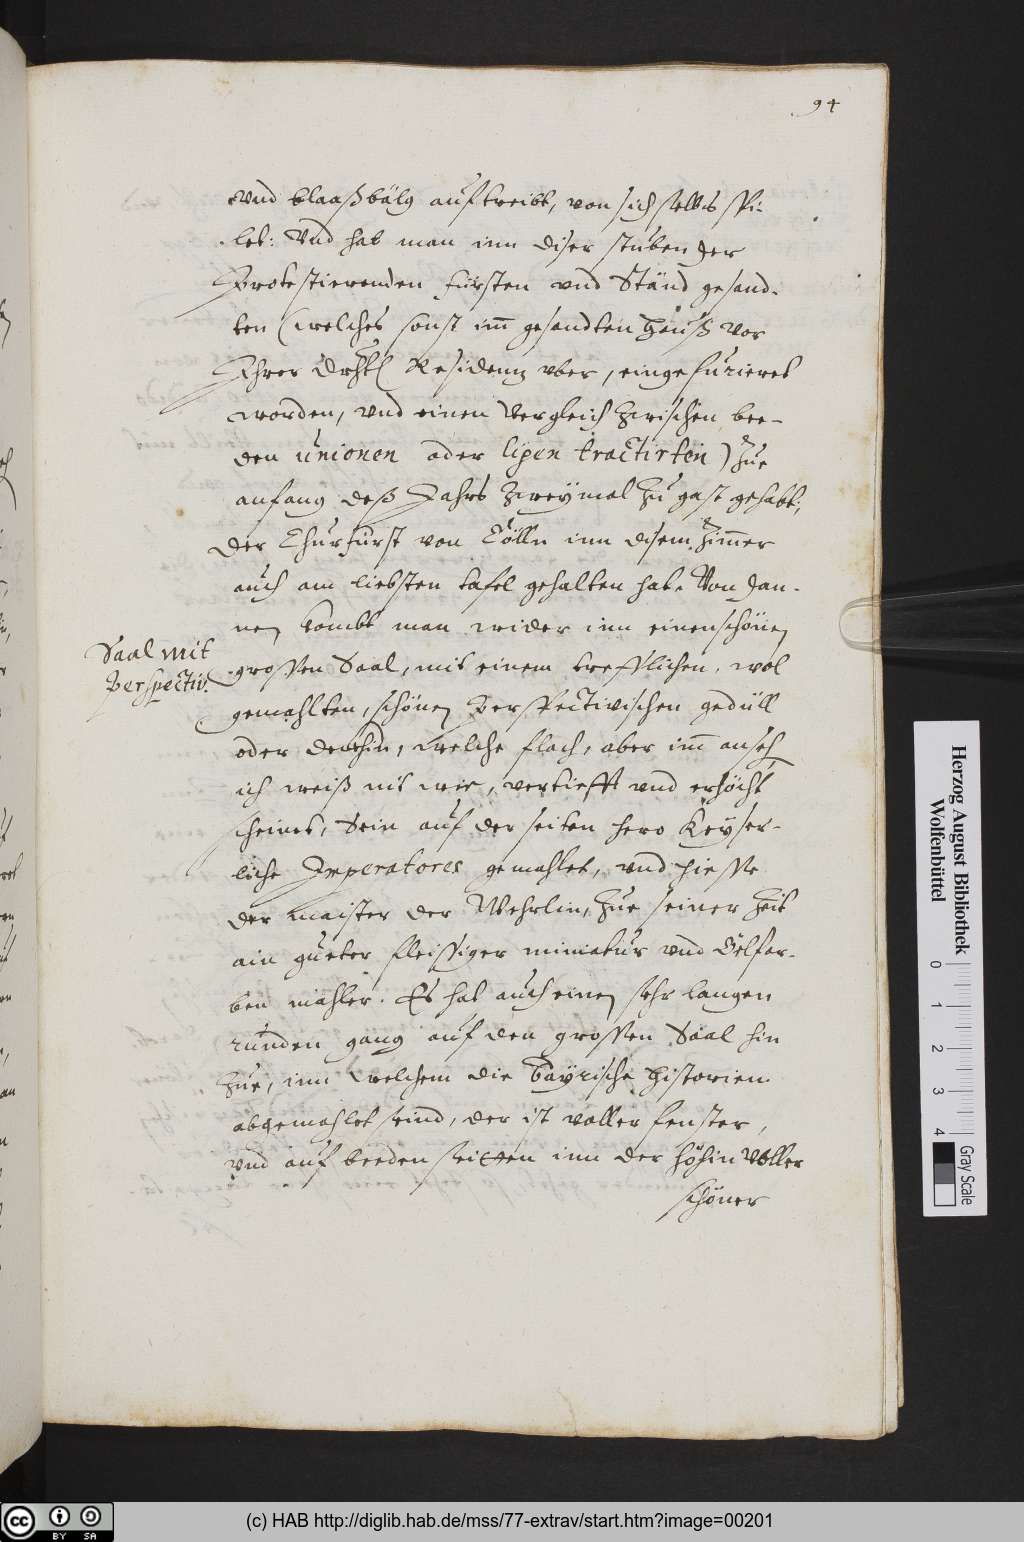 94
vnd blaaßbälg auftreibt, von sich selbs spi-
let: Vnd hat man inn diser stuben der
Protestierenden fürsten vnd Ständ gesand-
ten (welches sonst im̃ gesandten hauß vor
Ihrer Drhtl Residenz vber, einge furieret
worden, vnd einen Vergleich zwischen bee-
den unionen oder ligen tractirten) zue
anfang deß Jahrs zweymal zu gast gehabt;
der Churfürst von Cölln inn disem zim̃er
auch am liebsten tafel gehalten hat. Von dan-
nen kombt man wider inn einen schönen
Saal mit
Perspectiv.
grossen Saal, mit einem trefflichen, wol
gemahlten, schönen Perspectivischen gedüll
oder , welche flach, aber im̃ ansehen
ich weiß nit wie, vertiefft vnd erhöcht
scheinet, Sein auf der seiten hero Keyser-
liche Imperatores gemahlet, vnd hiesse
der maister der Wehrlin, zue seiner zeit
ain gueter fleissiger miniatur vnd Öelfar-
ben mahler. Es hat auch einen sehr langen
runden gang auf den grossen Saal hin
zue, inn welchem die Bayrische historien
abgemahlet seind, der ist voller fenster,
vnd auf beeden seitten inn der höhin voller
schöner
Herzog August Bibliothek
Wolfenbüttel
0 1 2 3 4
Gray Scale
cc BY SA
(c) HAB http://diglib.hab.de/mss/77-extrav/start.htm?image=00201